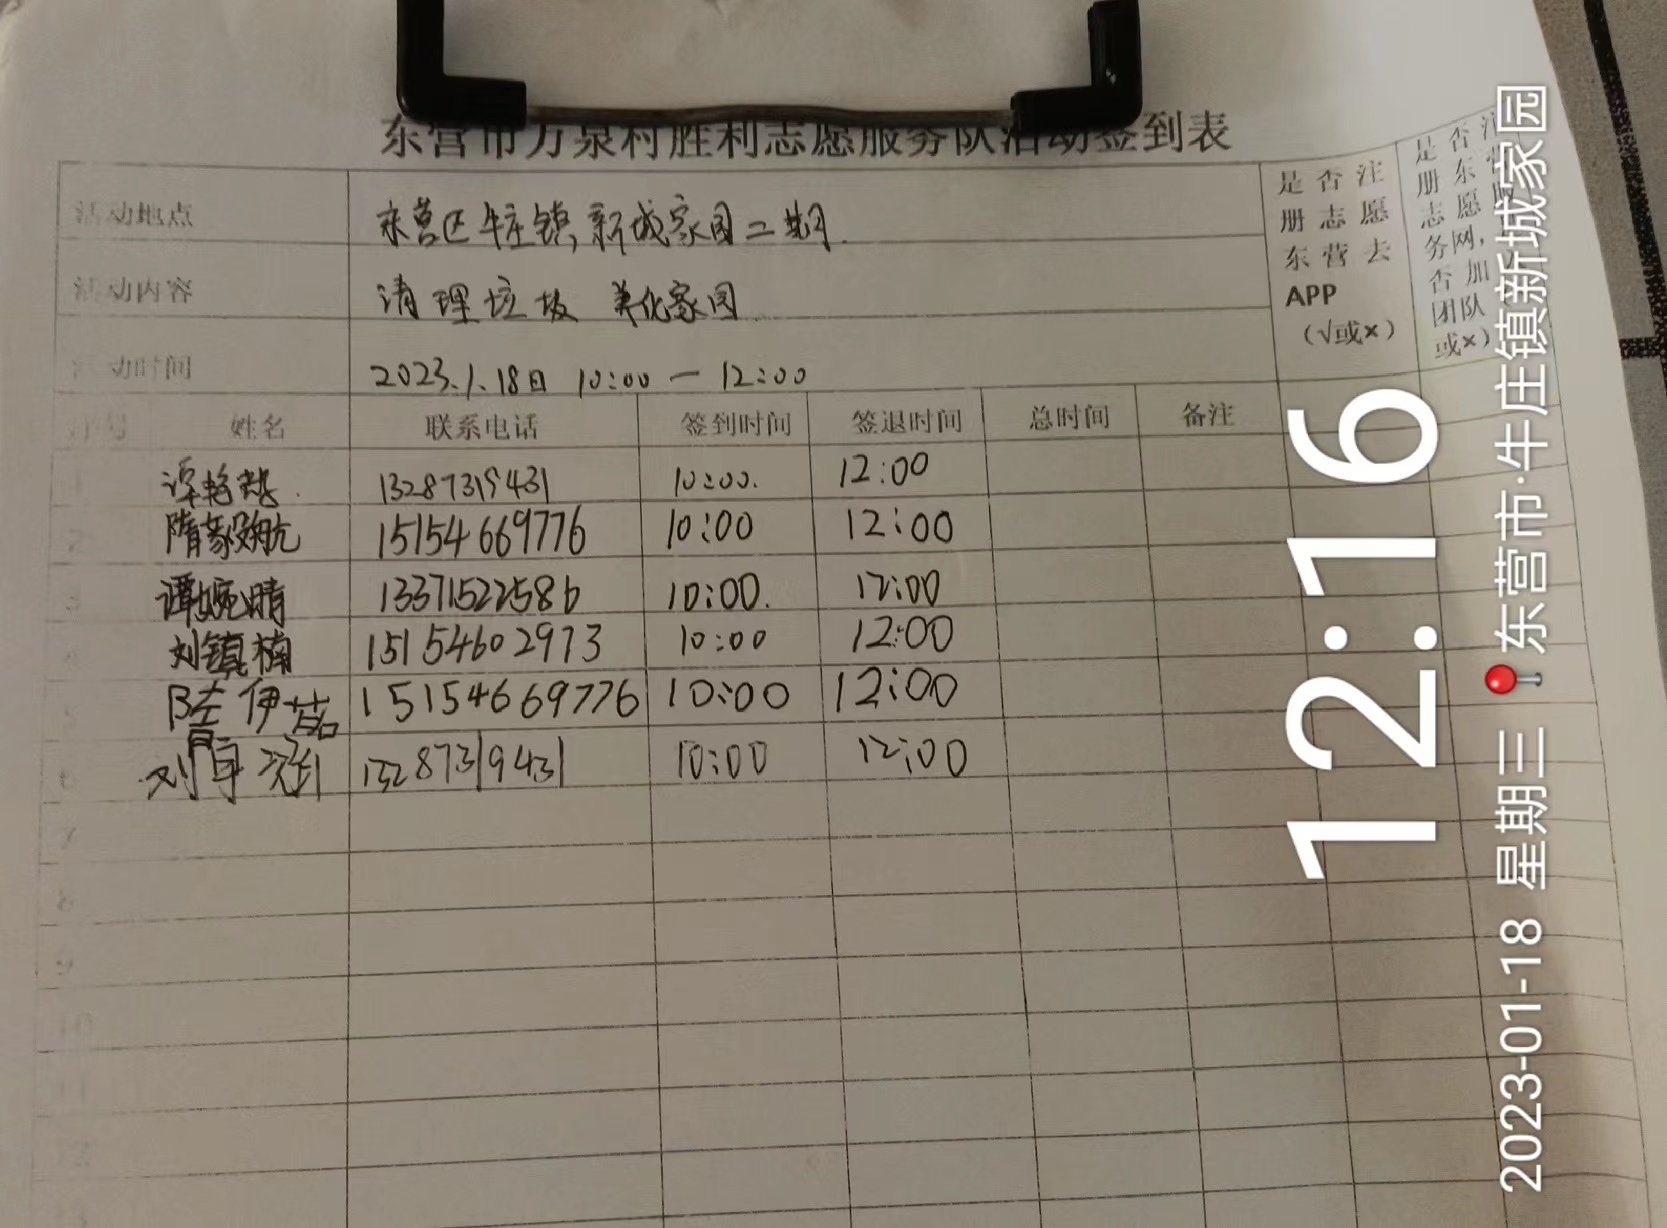 东营市万泉村胜利志愿服务队活动签到表
活动地点 东营区牛庄镇,新城家园二期.
活动内容 清理垃圾 美化家园.
活动时间 2023.1.18日 10:00 — 12:00
是否注册志愿东营去APP(√或×)
是否注册东营志愿服务网,是否加团队 或×)
序号 姓名 联系电话 签到时间 签退时间 总时间 备注
1 谭艳 13287319431 10:00. 12:00
2 隋 航 15154669776 10:00 12:00
3 谭婉晴 13371522586 10:00. 12:00
4 刘镇楠 15154602973 10:00 12:00
5 伊茹 15154669776 10:00 12:00
6 刘 13287319431 10:00 12:00
7
8
9
10
11
12
13
12:16
2023-01-18 星期三 东营市·牛庄镇新城家园